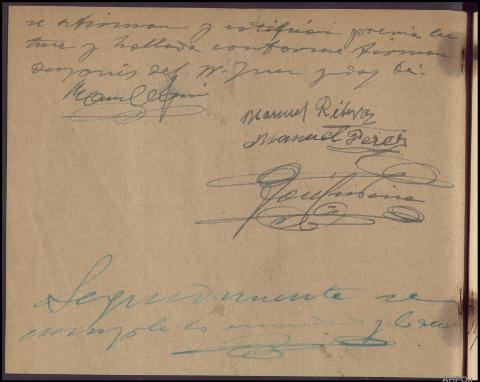 se afirman y ratifican previa lec
tura y hallada conforme firman
después del Sr Juez y doy fé.
Manuel
Manuel Ribera
Manuel Perez
José
Seguidamente se
cumple lo y doy fé